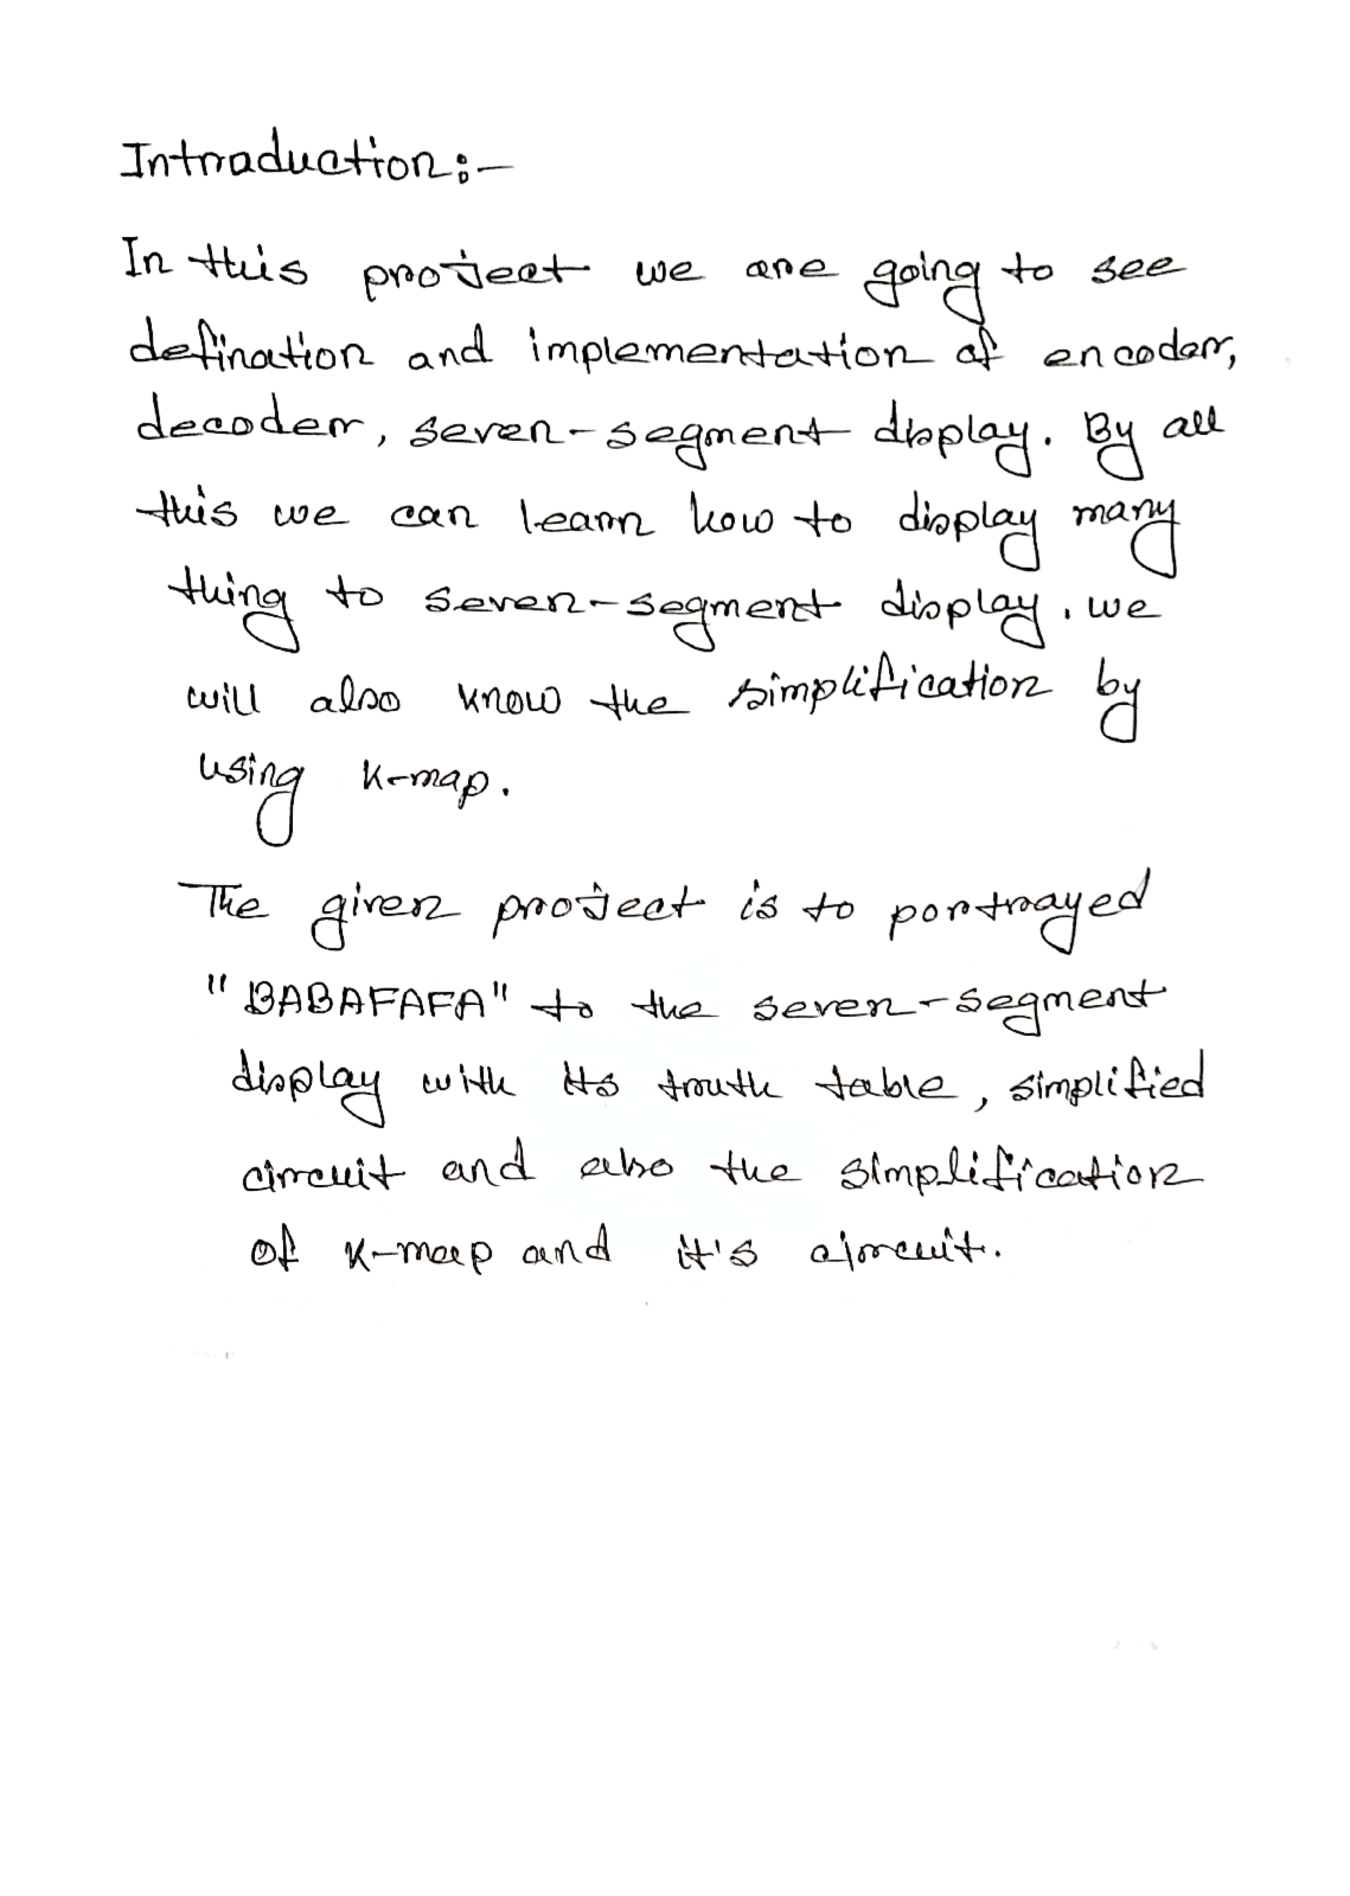 Introduction:-
In this project we are going to see
defination and implementation of encoder,
decoder, seven-segment display. By all
this we can learn how to display many
thing to seven-segment display. we
will also know the simplification by
using K-map.
The given project is to portrayed
"BABAFAFA" to the seven-segment
display with its truth table, simplified
circuit and also the simplification
of K-map and it's circuit.